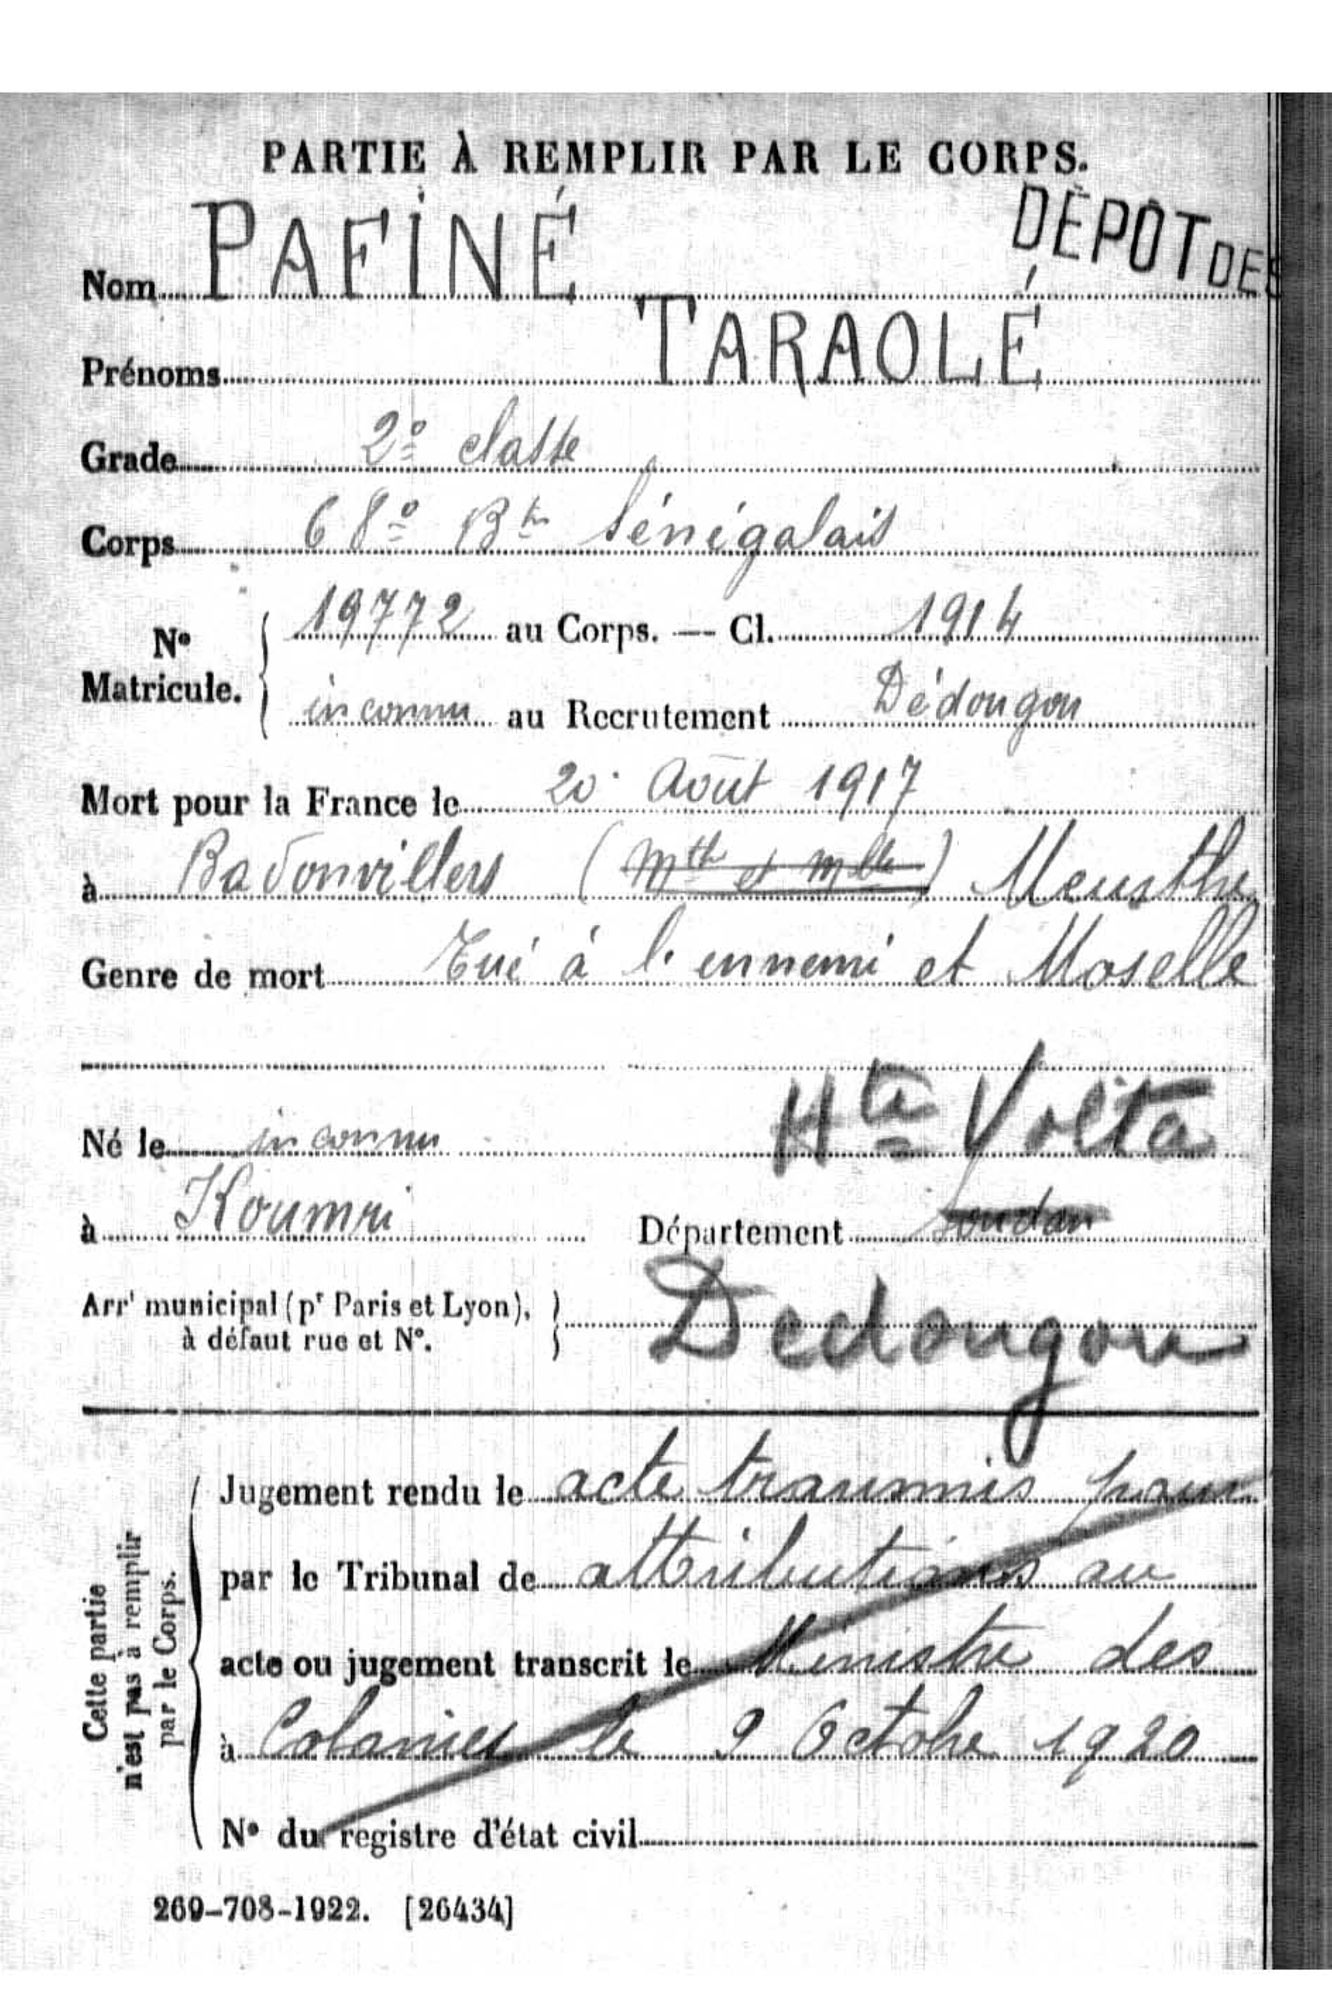 PARTIE À REMPLIR PAR LE CORPS.
DÉPÔT DES
Nom PAFINÉ
Prénoms TARAOLÉ
Grade 2e classe
Corps 68e Bton Sénégalais
No Matricule. 19772 au Corps. — Cl. 1914
inconnu au Recrutement Dédougou
Mort pour la France le 20 Août 1917
à Badonvillers (Mthe et Mlle) Meurthe
Genre de mort Tué à l'ennemi et Moselle
Hte Volta
Né le inconnu
à Koumri Département Soudan
Arrt municipal (pr Paris et Lyon), à défaut rue et No. Dedougou
Cette partie n'est pas à remplir par le Corps.
Jugement rendu le acte transmis pour
par le Tribunal de attributions au
acte ou jugement transcrit le Ministre des
à Colonies le 9 Octobre 1920
No du registre d'état civil
269-708-1922. [26434]